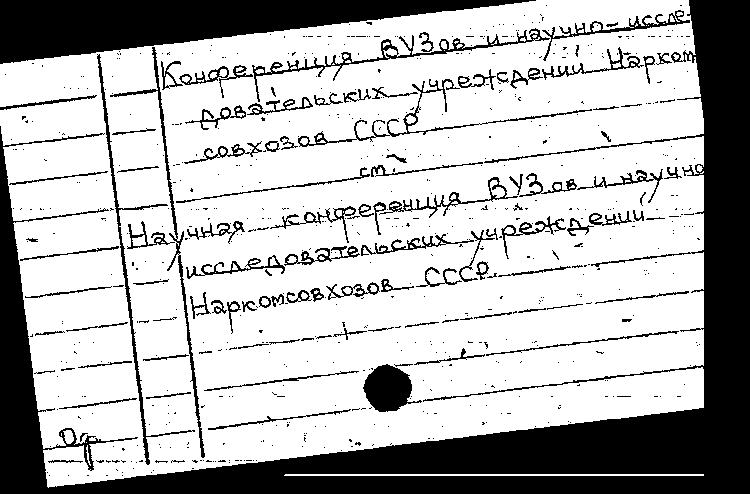 Конференция ВУЗов и научно-иссле-
довательских учреждений Нарком
совхозов СССР.
см.
Научная конференция ВУЗов и научно
исследовательских учреждений
Наркомсовхозов СССР.